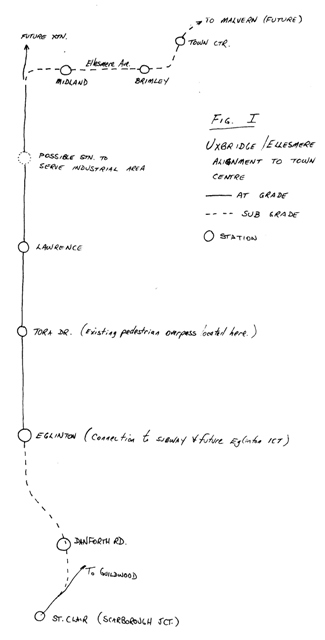 TO MALVERN (FUTURE)
FUTURE XTN.
TOWN CTR.
Ellesmere Ave.
MIDLAND
BRIMLEY
FIG. I
UXBRIDGE/ELLESMERE
ALIGNMENT TO TOWN
CENTRE
AT GRADE
SUB GRADE
STATION
POSSIBLE STN. TO
SERVE INDUSTRIAL AREA
LAWRENCE
TORA DR. (Existing pedestrian overpass located here.)
EGLINTON (Connection to SUBWAY & future Eglinton ICT)
DANFORTH RD.
To GUILDWOOD
ST. CLAIR (SCARBOROUGH JCT.)